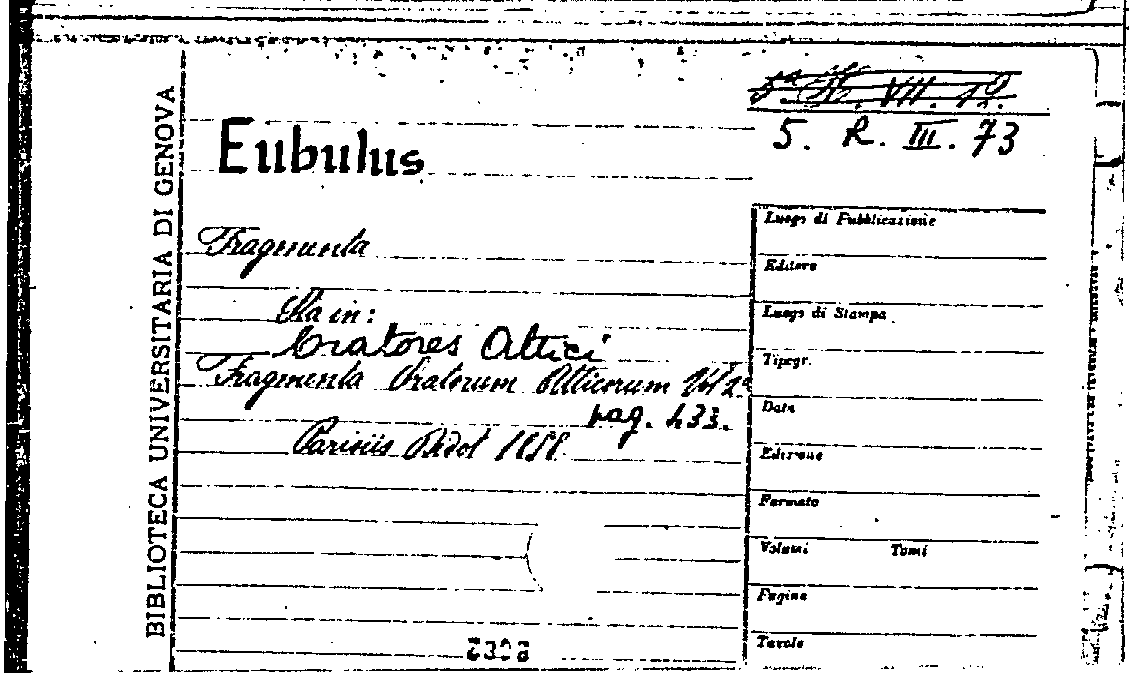 5. R. III. 73
Eubulus
Fragmenta
Sta in:
Oratores Attici
Fragmenta Oratorum Atticorum Vol 2º
pag. 433.
Parisiis Didot 1858
BIBLIOTECA UNIVERSITARIA DI GENOVA
Luogo di Pubblicazione
Editore
Luogo di Stampa
Tipogr.
Data
Edizione
Formato
Volumi Tomi
Pagine
Tavole